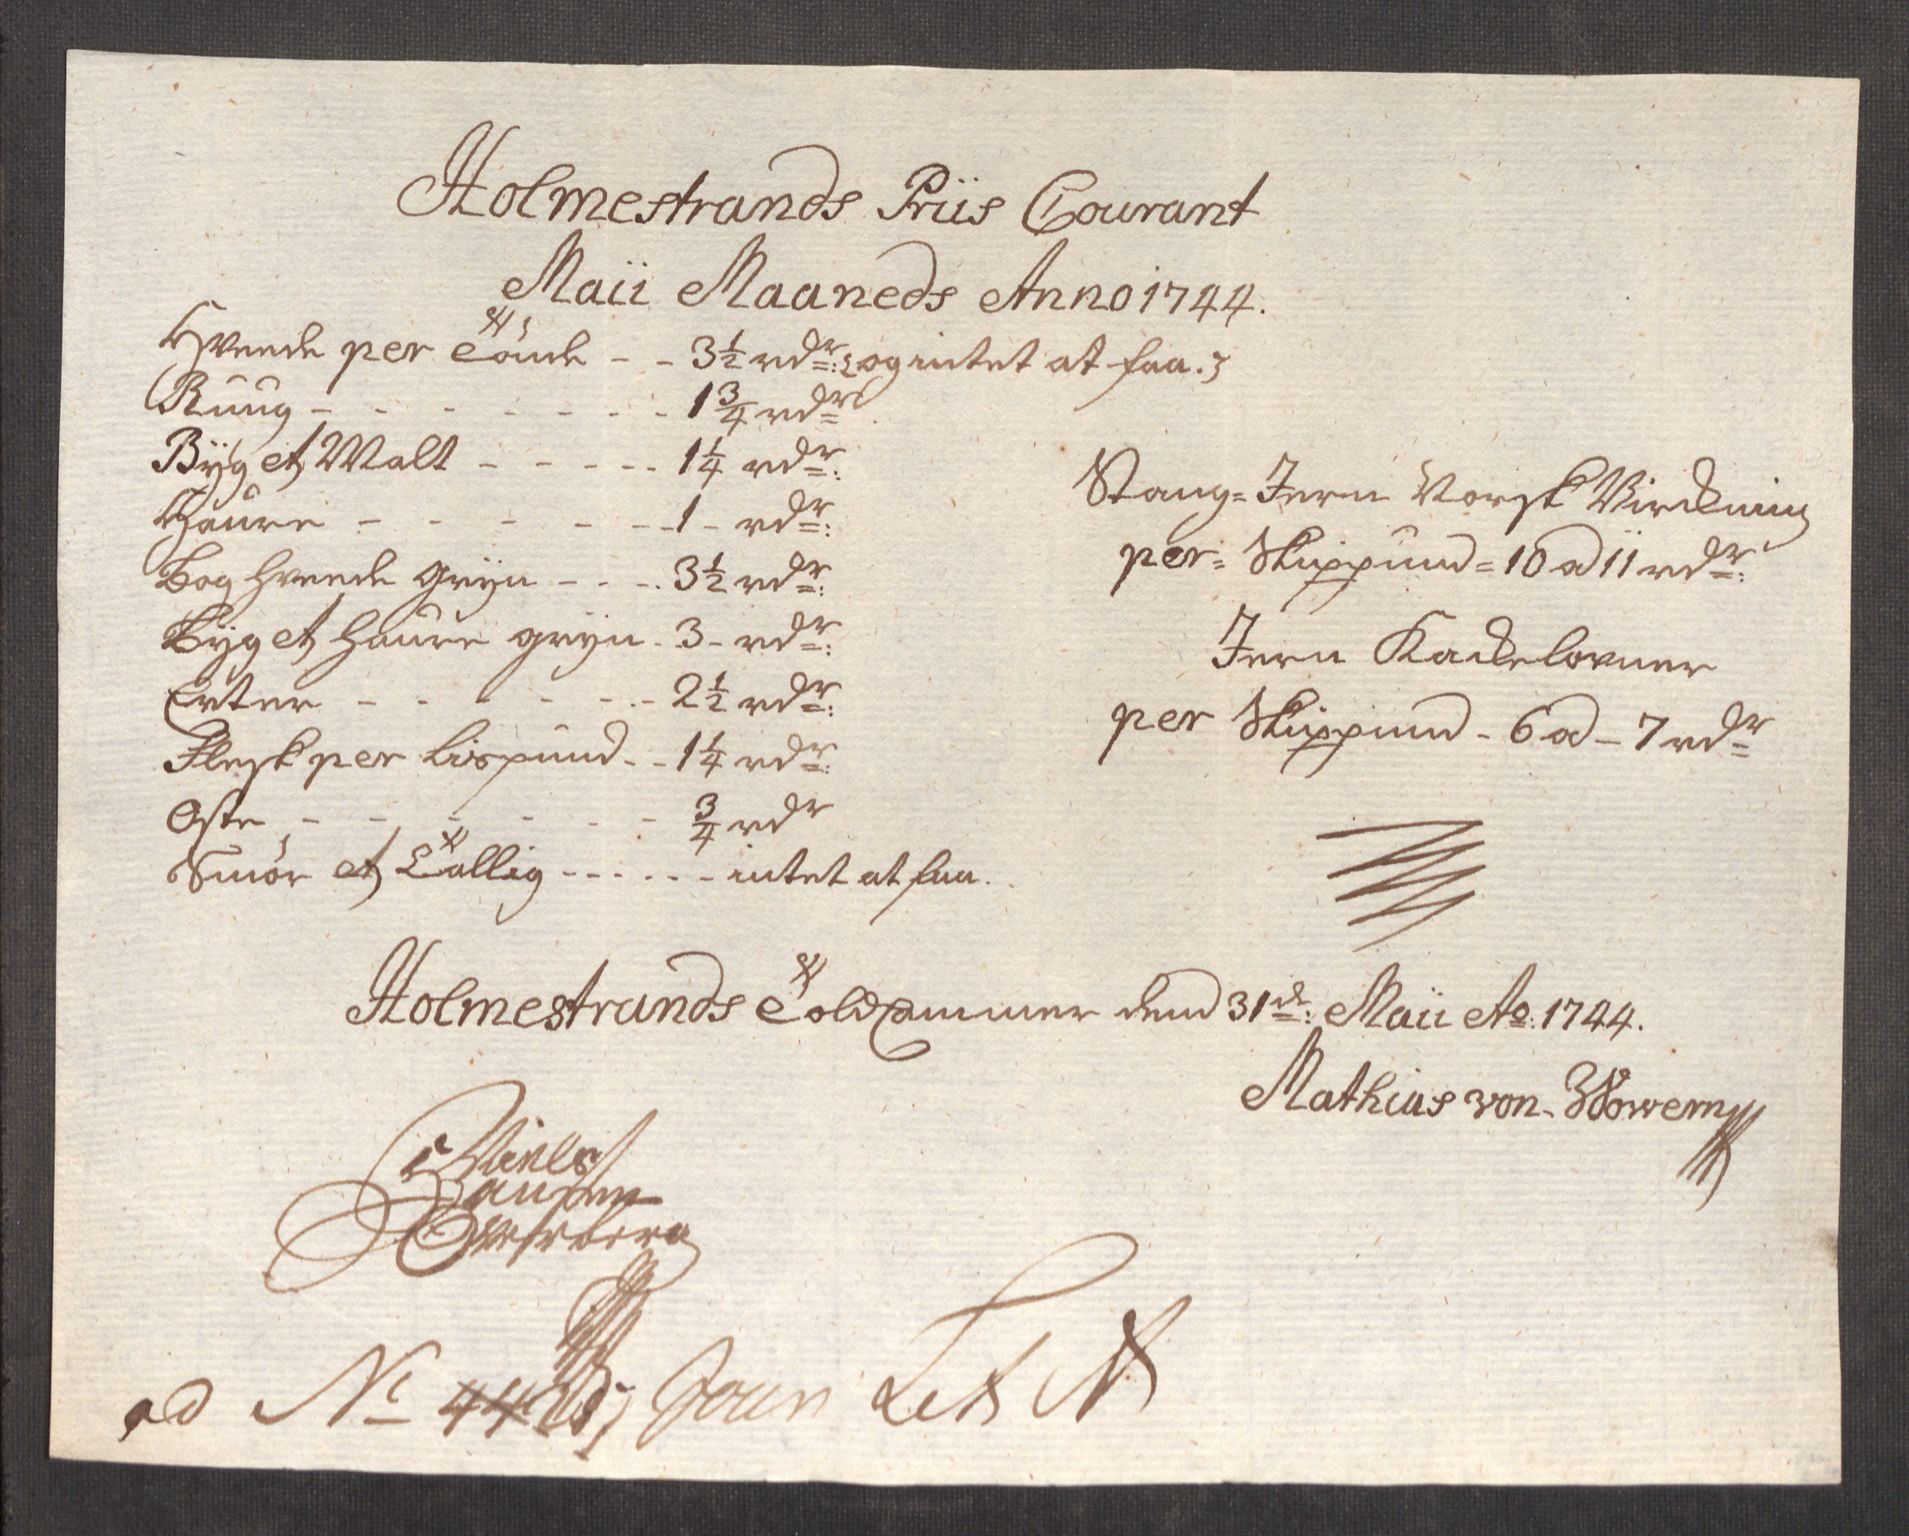 Holmestrands Priis Courant
Maii Maaneds Anno 1744.
Hveede per Tönde - - 3½ rdr: og intet at faa.
Ruug - - - - - - - 1¾ rdr
Byg et Malt - - - - - 1¼ rdr:
Haure - - - - - - 1 - rdr:
Boghveede gryn - - - 3½ rdr:
Byg et haure gryn - 3 - rdr:
Erter - - - - - - 2½ rdr:
Flesk per Lispund - - 1¼ rdr:
Oste - - - - - - ¾ rdr
Smör et Tallig - - - - - - intet at faa.
Stang-Jern Norsk Virckning
per Skippund = 10 a 11 rdr:
Jern Kackelovner
per Skippund - 6 a - 7 rdr
Holmestrands Toldcammer dend 31de: Maii Ao: 1744.
Mathias von Wowern
Niels
Hansen
Ad No
Journ Lit